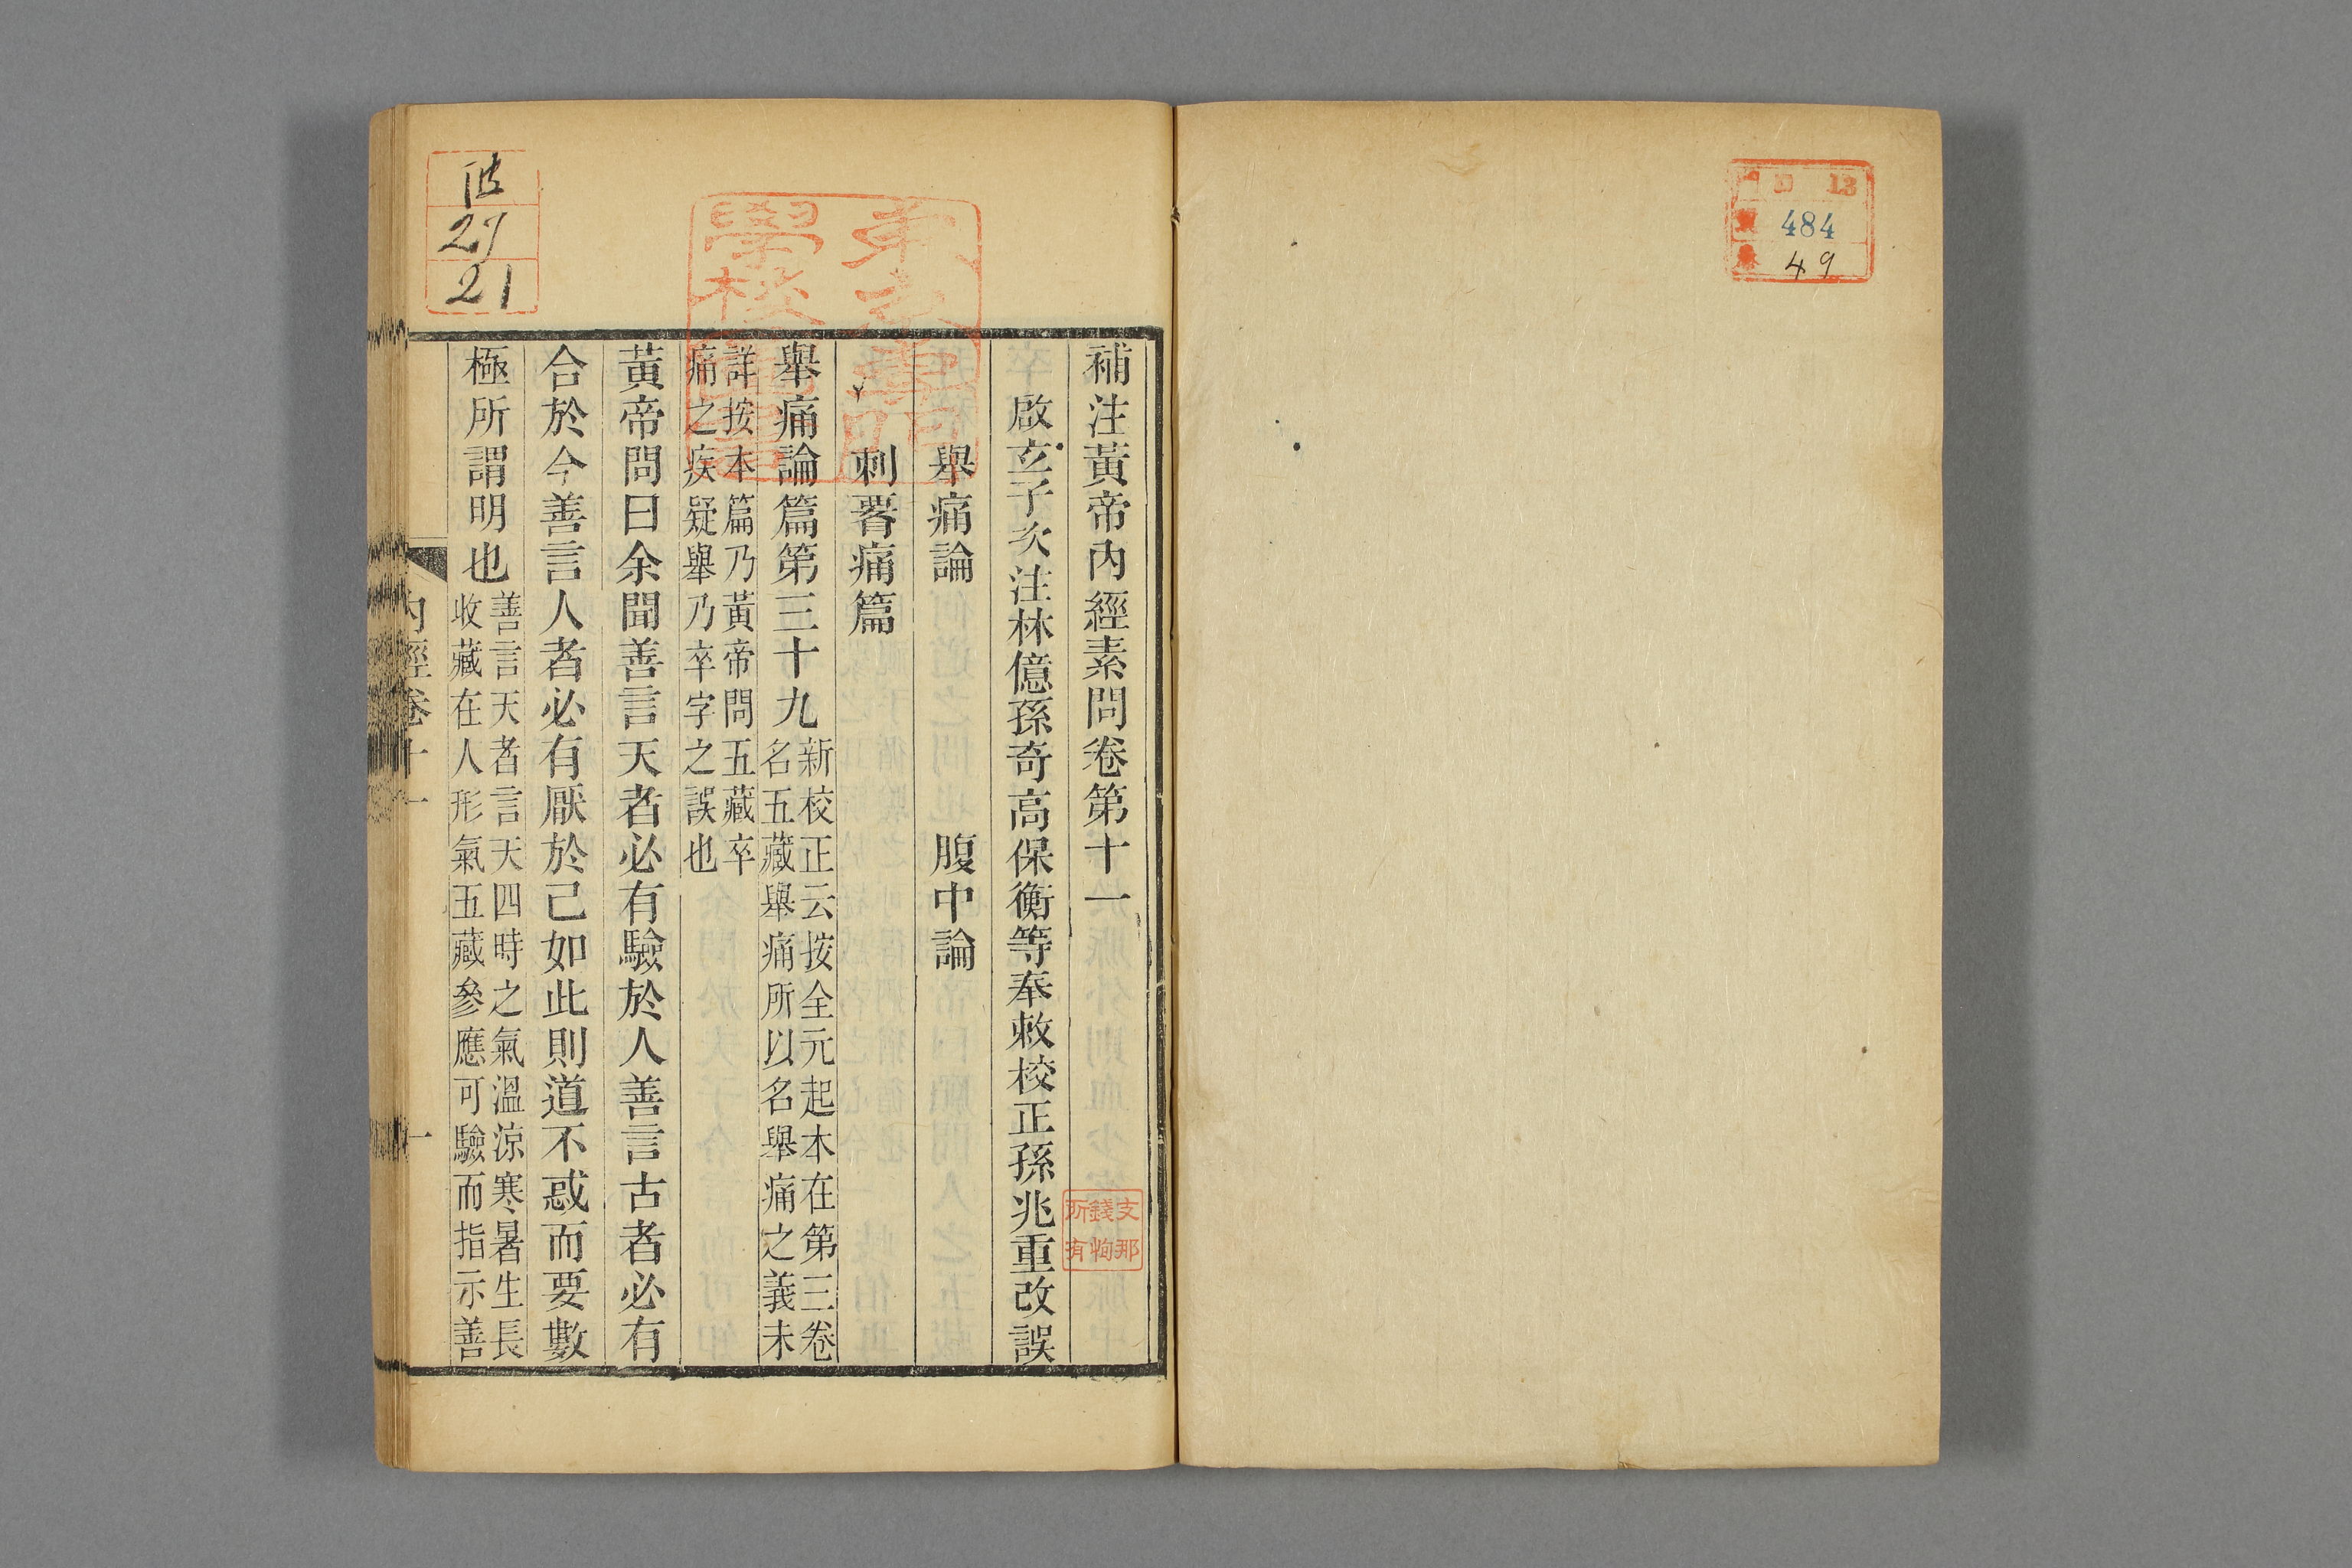 484
49
補注黃帝內經素問卷第十一
啟玄子次注林億孫奇高保衡等奉敕校正孫兆重改誤
舉痛論　腹中論
刺䏚痛篇
舉痛論篇第三十九新校正云按全元起本在第三卷
名五藏舉痛所以名舉痛之義未
詳按本篇乃黃帝問五藏卒
痛之疾疑舉乃卒字之誤也
黃帝問曰余聞善言天者必有驗於人善言古者必有
合於今善言人者必有厭於己如此則道不惑而要數
極所謂明也善言天者言天四時之氣溫涼寒暑生長
收藏在人形氣五藏參應可驗而指示善
內經卷十一
一
支那
錢恂
所有
27
21